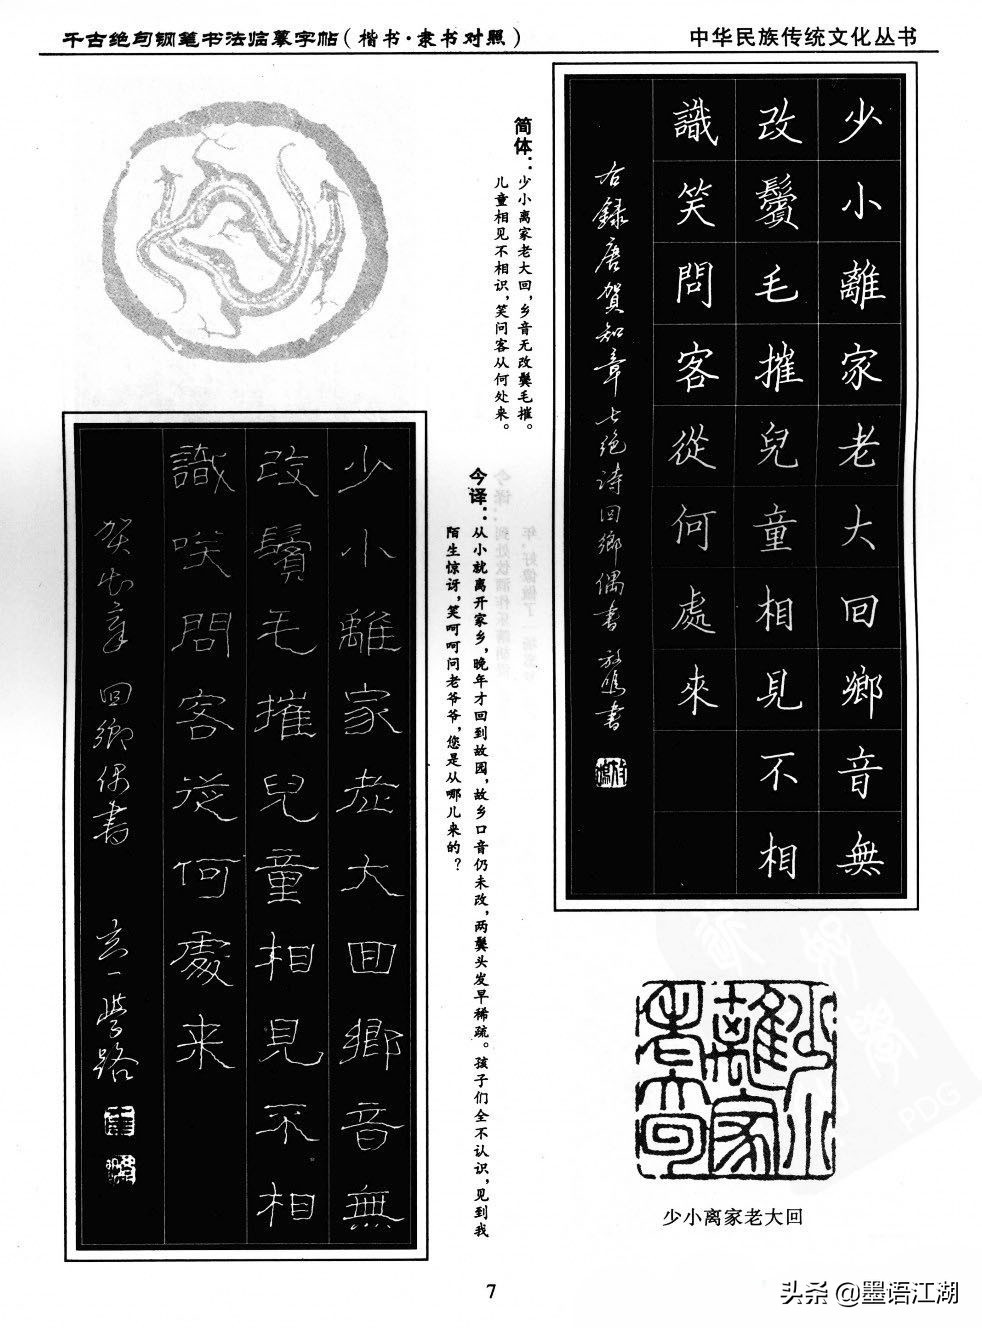 千古绝句钢笔书法临摹字帖(楷书·隶书对照)
中华民族传统文化丛书
少小離家老大回鄉音無
改鬢毛摧兒童相見不相
識笑問客從何處來
右録唐賀知章七绝诗回鄉偶書
简体:少小离家老大回,乡音无改鬓毛摧。
儿童相见不相识,笑问客从何处来。
今译:从小就离开家乡,晚年才回到故园,故乡口音仍未改,两鬓头发早稀疏。孩子们全不认识,见到我
陌生惊讶,笑呵呵问老爷爷,您是从哪儿来的?
少小離家老大回鄉音無
改鬢毛摧兒童相見不相
識咲問客从何處来
贺知章 回鄉偶書
少小離家老大回
少小离家老大回
7
头条@墨语江湖